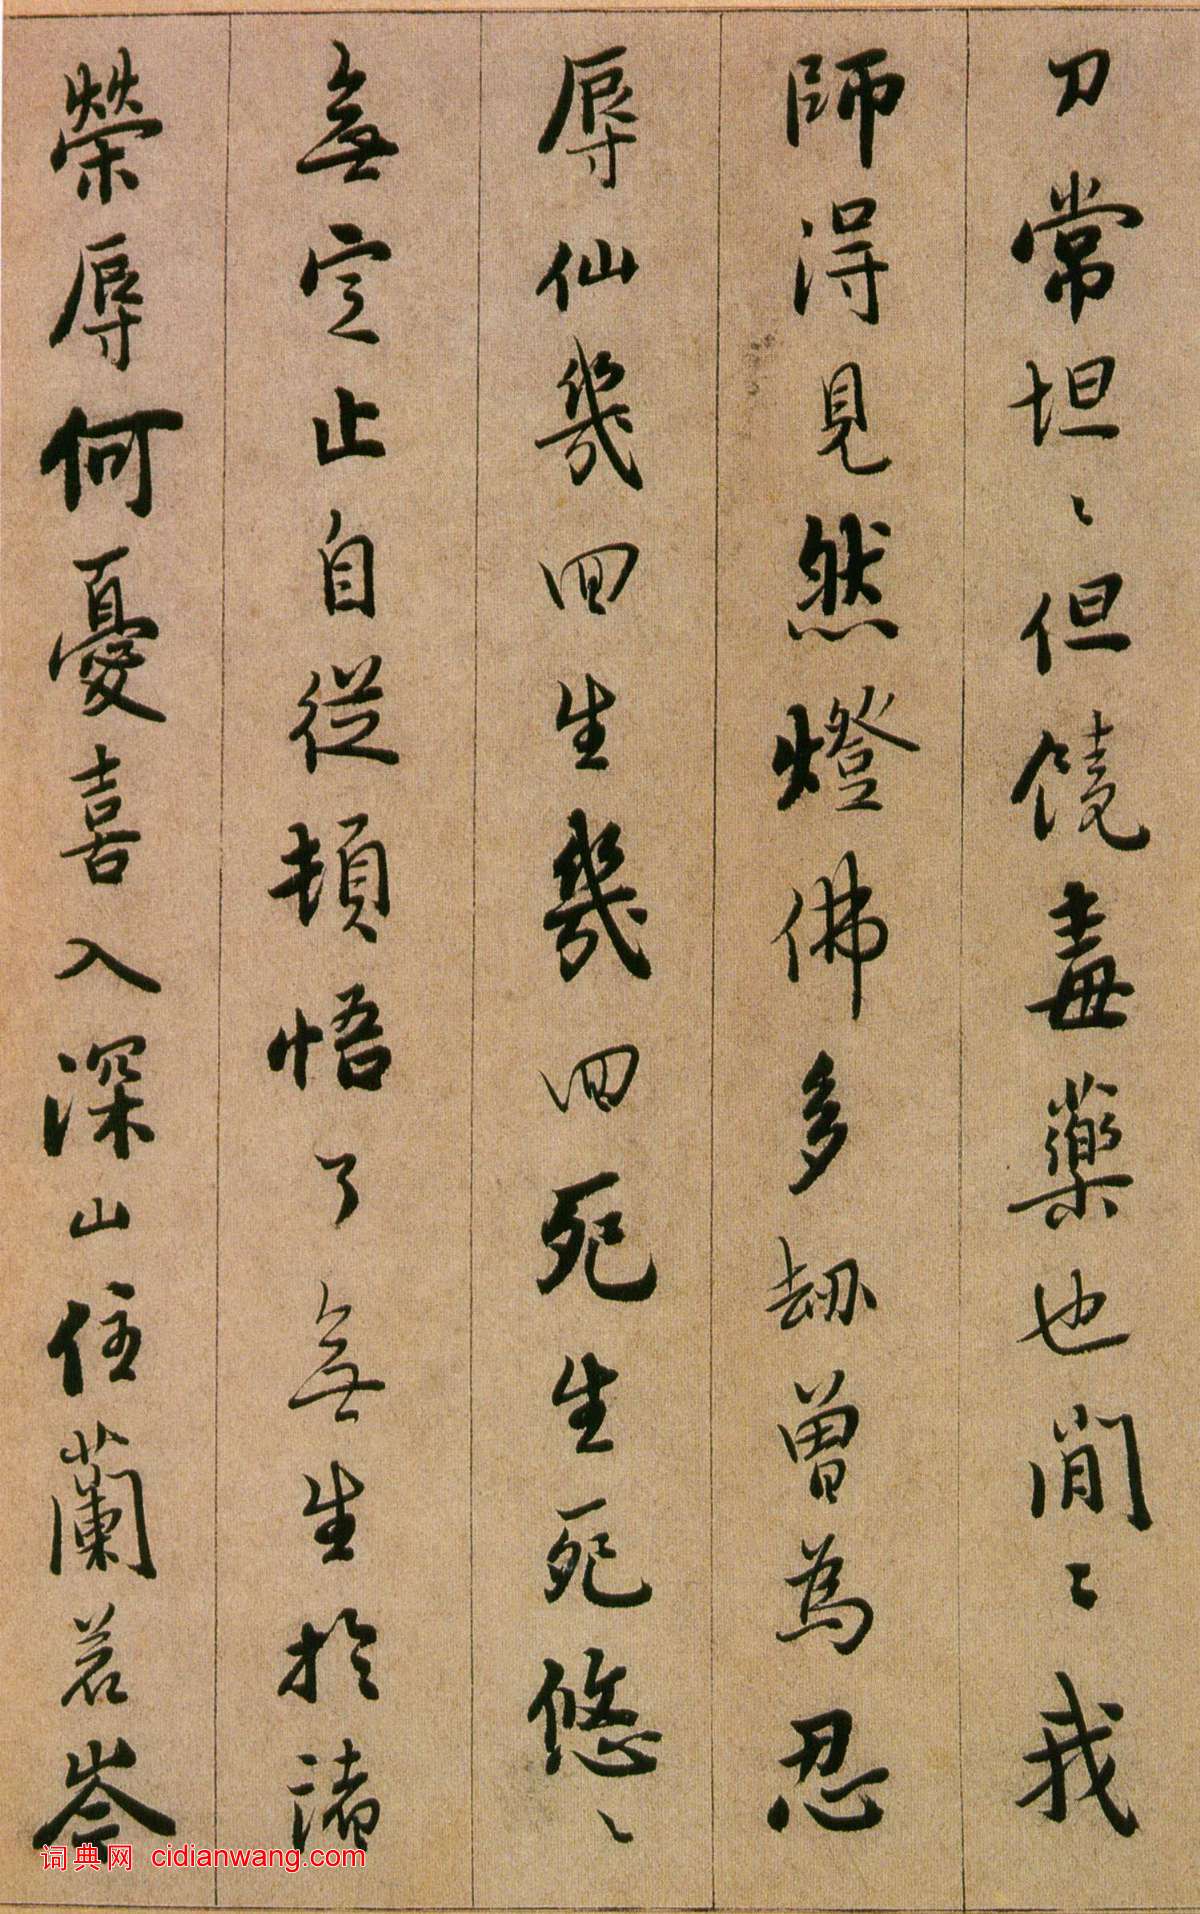 刀常坦〻但饒毒藥也閒〻我
師得見然燈佛多劫曾為忍
辱仙幾回生幾回死生死悠〻
無定止自從頓悟了無生於諸
榮辱何憂喜入深山住蘭若岑
词典网 cidianwang.com